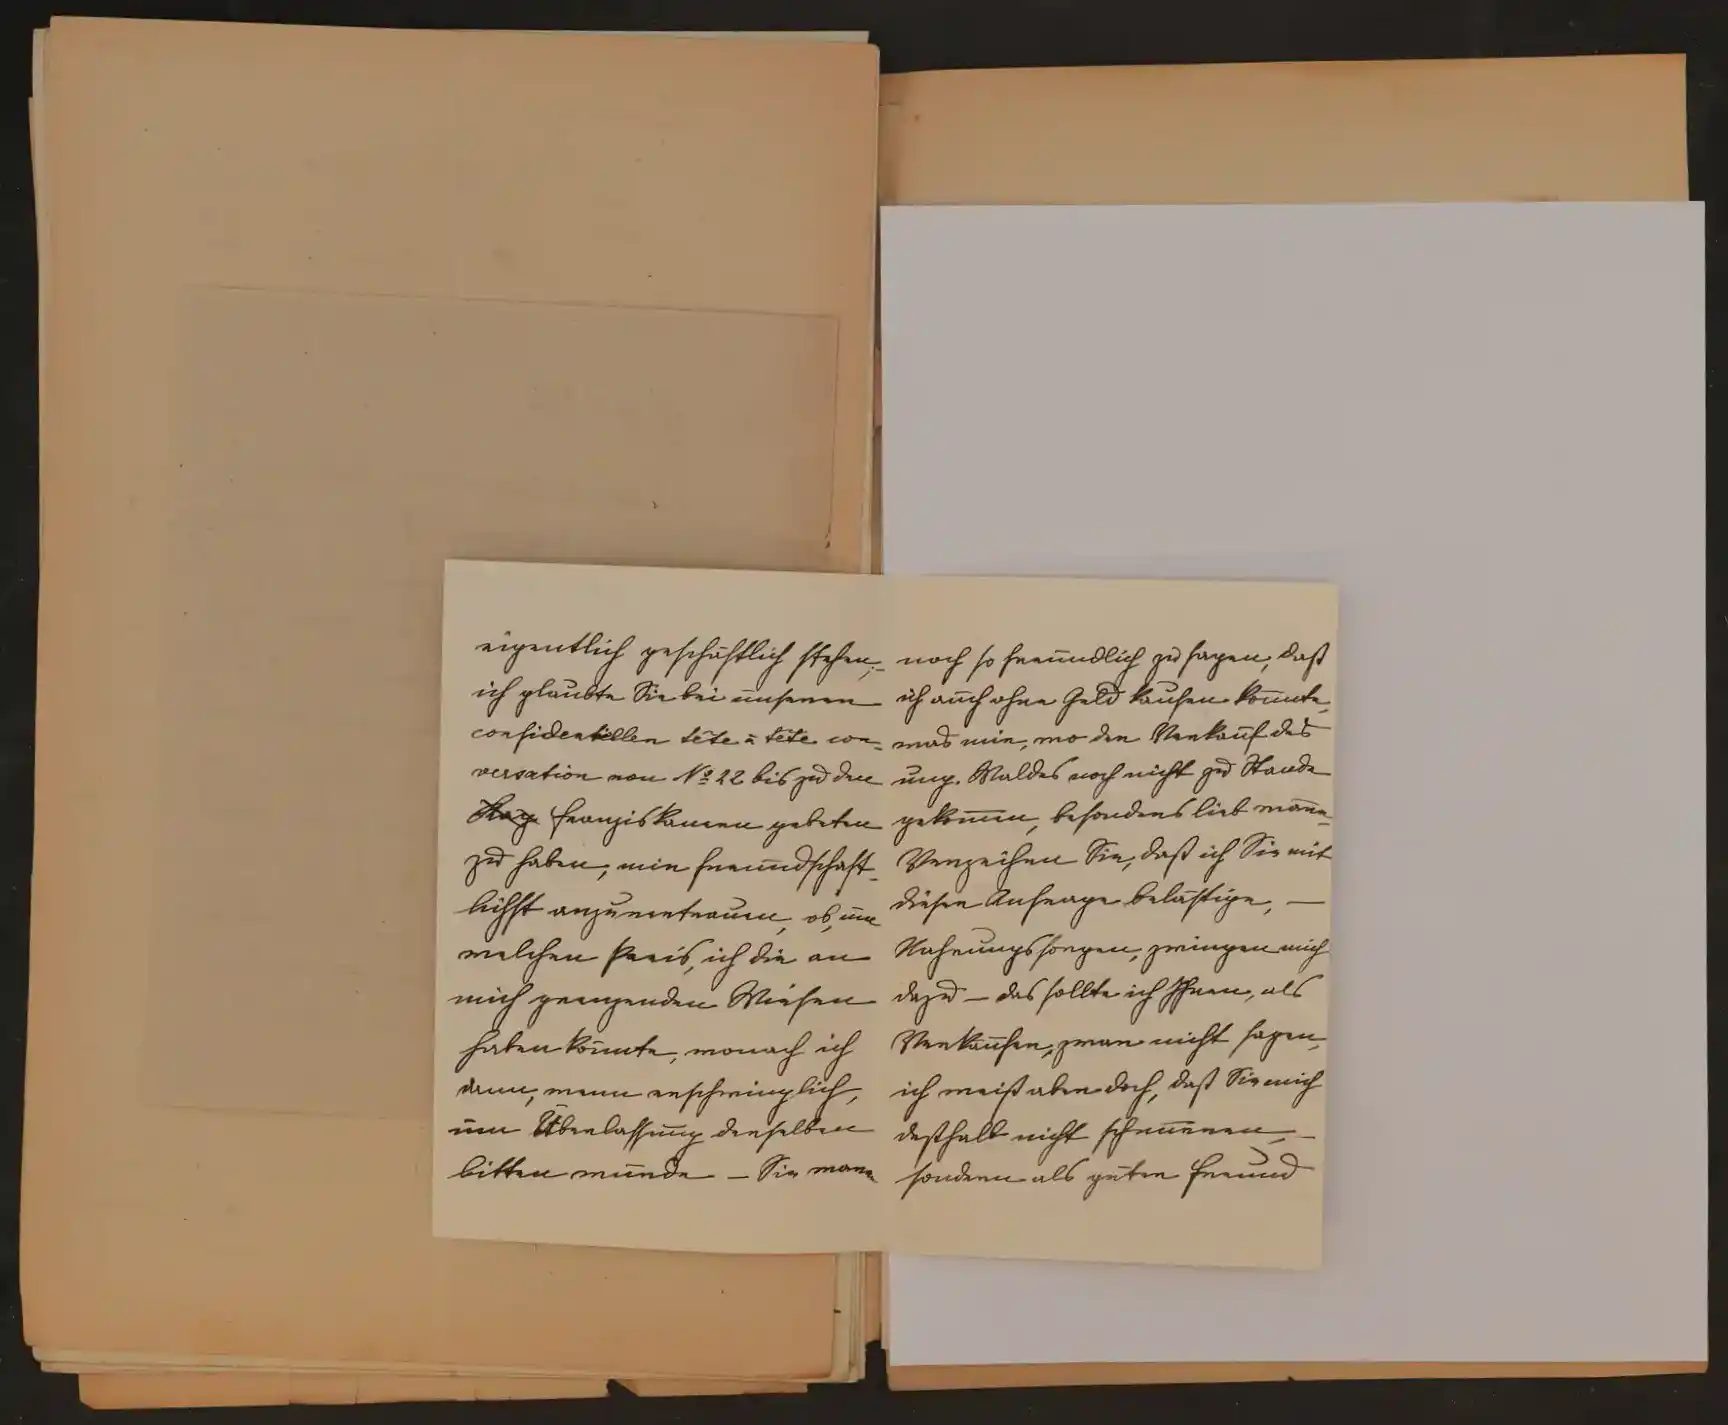 eigentlich geschäftlich stehen,
ich glaubte Sie bei unserer
confidentillen tête à tête con-
versation von No 22 bis zu den
Franziskanern gebeten
zu haben, mir freundschaft-
lichst anzuvertrauen, ob, um
welchen Preis, ich die an
mich grenzenden Wiesen
haben könnte, wonach ich
dann, wenn erschwinglich,
um Überlassung derselben
bitten würde – Sie waren
noch so freundlich zu sagen, daß
ich auch ohne Geld kaufen könnte,
was mir, wo der Verkauf des
ung. Waldes noch nicht zu Stande
gekommen, besonders lieb wäre.
Verzeihen Sie, daß ich Sie mit
dieser Anfrage belästige, –
Nahrungssorgen, zwingen mich
dazu – das sollte ich Ihnen, als
Verkäufer, zwar nicht sagen,
ich weiß aber doch, daß Sie mich
deßhalb nicht –
sondern als guter Freund